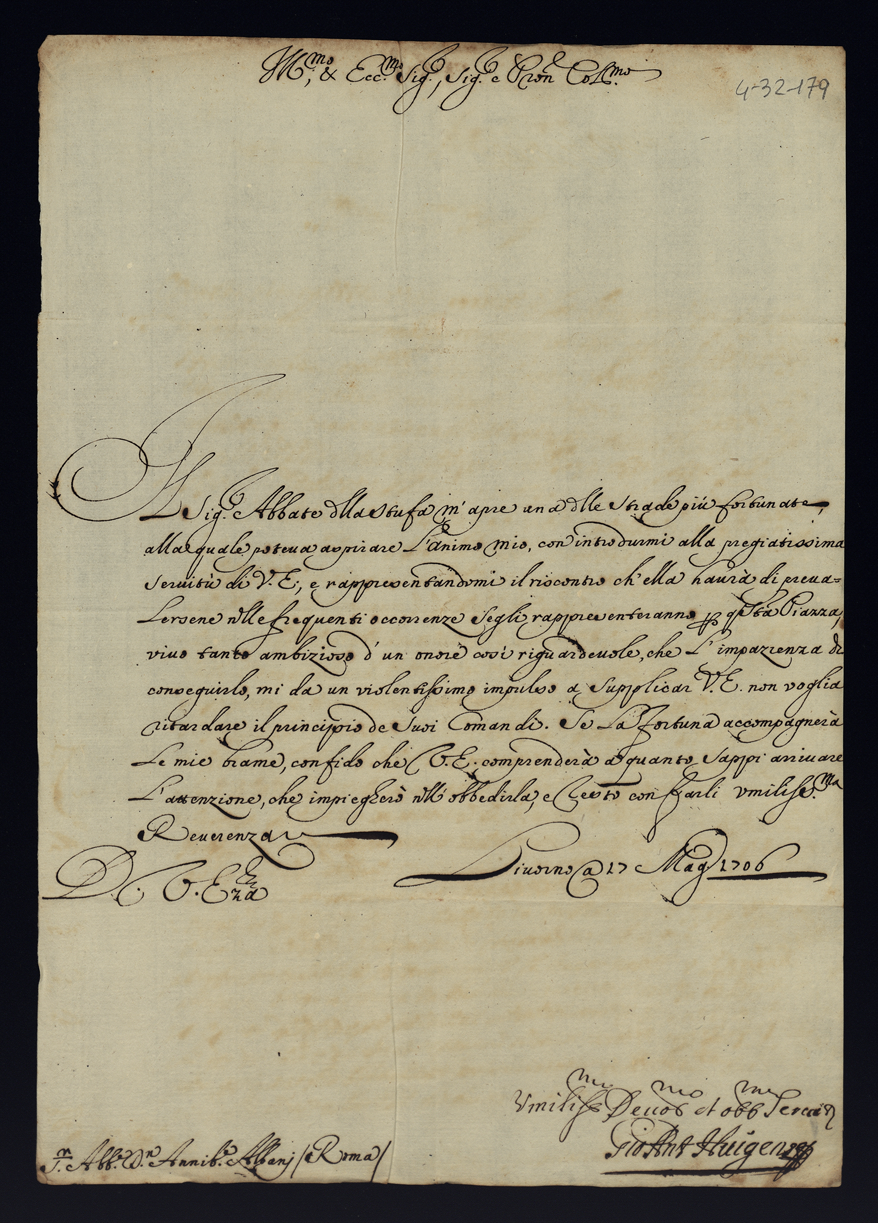 Ill.mo, & Ecc.mo Sig.r, Sig.r e Pron Col.mo
4-32-179
Il Sig.r Abbate dlla Stufa m'apre una dlle strade più fortunate,
alla quale poteva aspirare l'animo mio, con introdurmi alla pregiatissima
servitù di V.E., e rappresentandomi il riscontro ch'ella haurà di preua=
lersene nlle frequenti occorrenze se gli rappresenteranno p qsta Piazza,
viuo tanto ambizioso d'un onore così riguardeuole, che l'impazienza di
conseguirlo, mi da un violentissimo impulso a supplicar V.E. non voglia
ritardare il principio de Suoi Comandi. Se la Fortuna accompagnerà
le mie brame, confido che V.E. comprenderà a quanto sappi arriuare
l'attenzione, che impiegherò nll'obbedirla, e resto con farli vmiliss.ma
Reuerenza
D. V. Ecc.za Liuorno a 17 Mag.o 1706
Vmiliss.mo Deuot.mo et obb.mo Seruit.e
Gio Ant Huigens
S.r Abb.e D.n Annib.e Albanj (Roma)